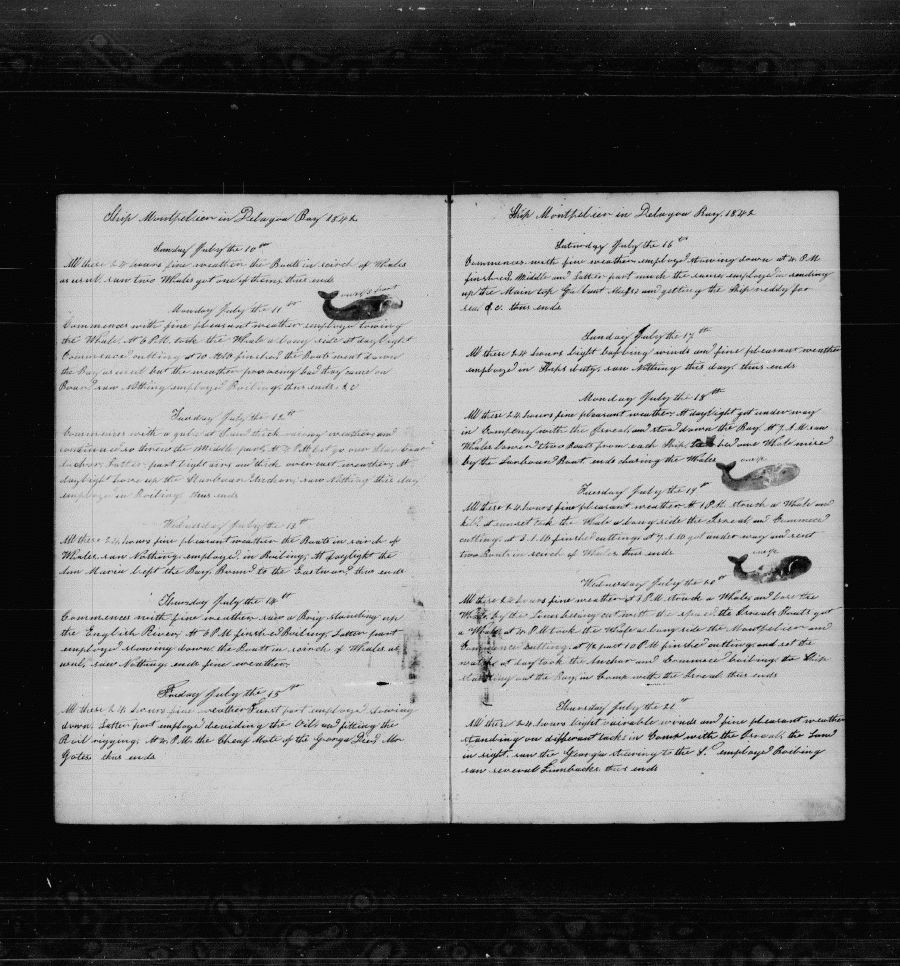 Ship Montpelier in Delagoa Bay 1842
Sunday July the 10th
All these 24 hours fine weather the Boats in search of Whales
as usual saw two Whales got one of them, thus ends
Monday July the 11th
Commences with fine pleasant weather employed towing
the Whale. At 6 P.M. took the Whale a long side at daylight
Commenced cutting at 10 finished the Boats went down
the Bay as usual but the weather proveing bad they came on
Board saw nothing employed Boiling, thus ends &c
Tuesday July the 12th
Commences with a gale at thick weather and
continued so threw the Middle part, At P.M. let go our
Anchor. Latter part light airs and thick overcast weather, At
daylight hove up the Starboard Anchor, saw Nothing this day
employed in Boiling thus ends
Wednesday July the 13th
All these 24 hours fine pleasant weather the Boats in search of
Whales, saw Nothing, employed in Boiling, At daylight the
Ann Maria left the Bay, Bound to the Eastward, thus ends
Thursday July the 14th
Commences with fine weather saw a Brig standing up
the English River, At 6 P.M. finished Boiling, Latter part
employed stowing down the Boats in search of Whales as
usual, saw Nothing, ends fine weather,
Friday July the 15th
All these 24 hours fine weather First part employed stowing
down, Latter part employed deviding the Oil and fitting the
Rail rigging, At 4 P.M. the Cheap Mate of the Georgia Died Mr
Gates thus ends
Ship Montpelier in Delagoa Bay, 1842
Saturday July the 16th
Commences with fine weather employed stowing down at 4 P.M
finished, Middle and Latter part much the same employed in sending
up the Main top Gallant Mast and getting the Ship reddy for
sea &c. thus ends
Sunday July the 17th
All these 24 hours light baffling winds and fine pleasant weather
employed in Ships duty, saw Nothing this day, thus ends
Monday July the 18th
All these 24 hours fine pleasant weather, At daylight got under way
in Company with the and stood down the Bay, At 7 A.M. saw
Whales lower two Boats from each Ship, one Whale mised
by the Larboard Boat, ends chasing the Whales
Tuesday July the 19th
All these 24 hours fine pleasant weather At 1 P.M. struck a Whale and
at sunset took the Whale a long side the and Commenced
cutting, at 3 A.M finished cutting, at 7 A.M got under way and sent
two Boats in search of Whales thus ends
Wednesday July the 20th
All these 24 hours fine weather at 3 P.M. struck a Whale, and lost the
Whale, by the Line being cut with the spade, the Boats got
a Whale, at 4 P.M took the Whale a long side the Montpelier and
Commenced cutting, at ½ past 10 P.M finished cutting, and set the
watch, at day took the Anchor and Commenced boiling, the Ship
standing out the Bay, in Comp with the thus ends
Thursday July the 21st
All these 24 hours light vairable winds and fine pleasant weather
standing on different tacks in Comp with the the Land
in sight, saw the Georgia stearing to the S. employed Boiling
saw several Finnbacks thus ends